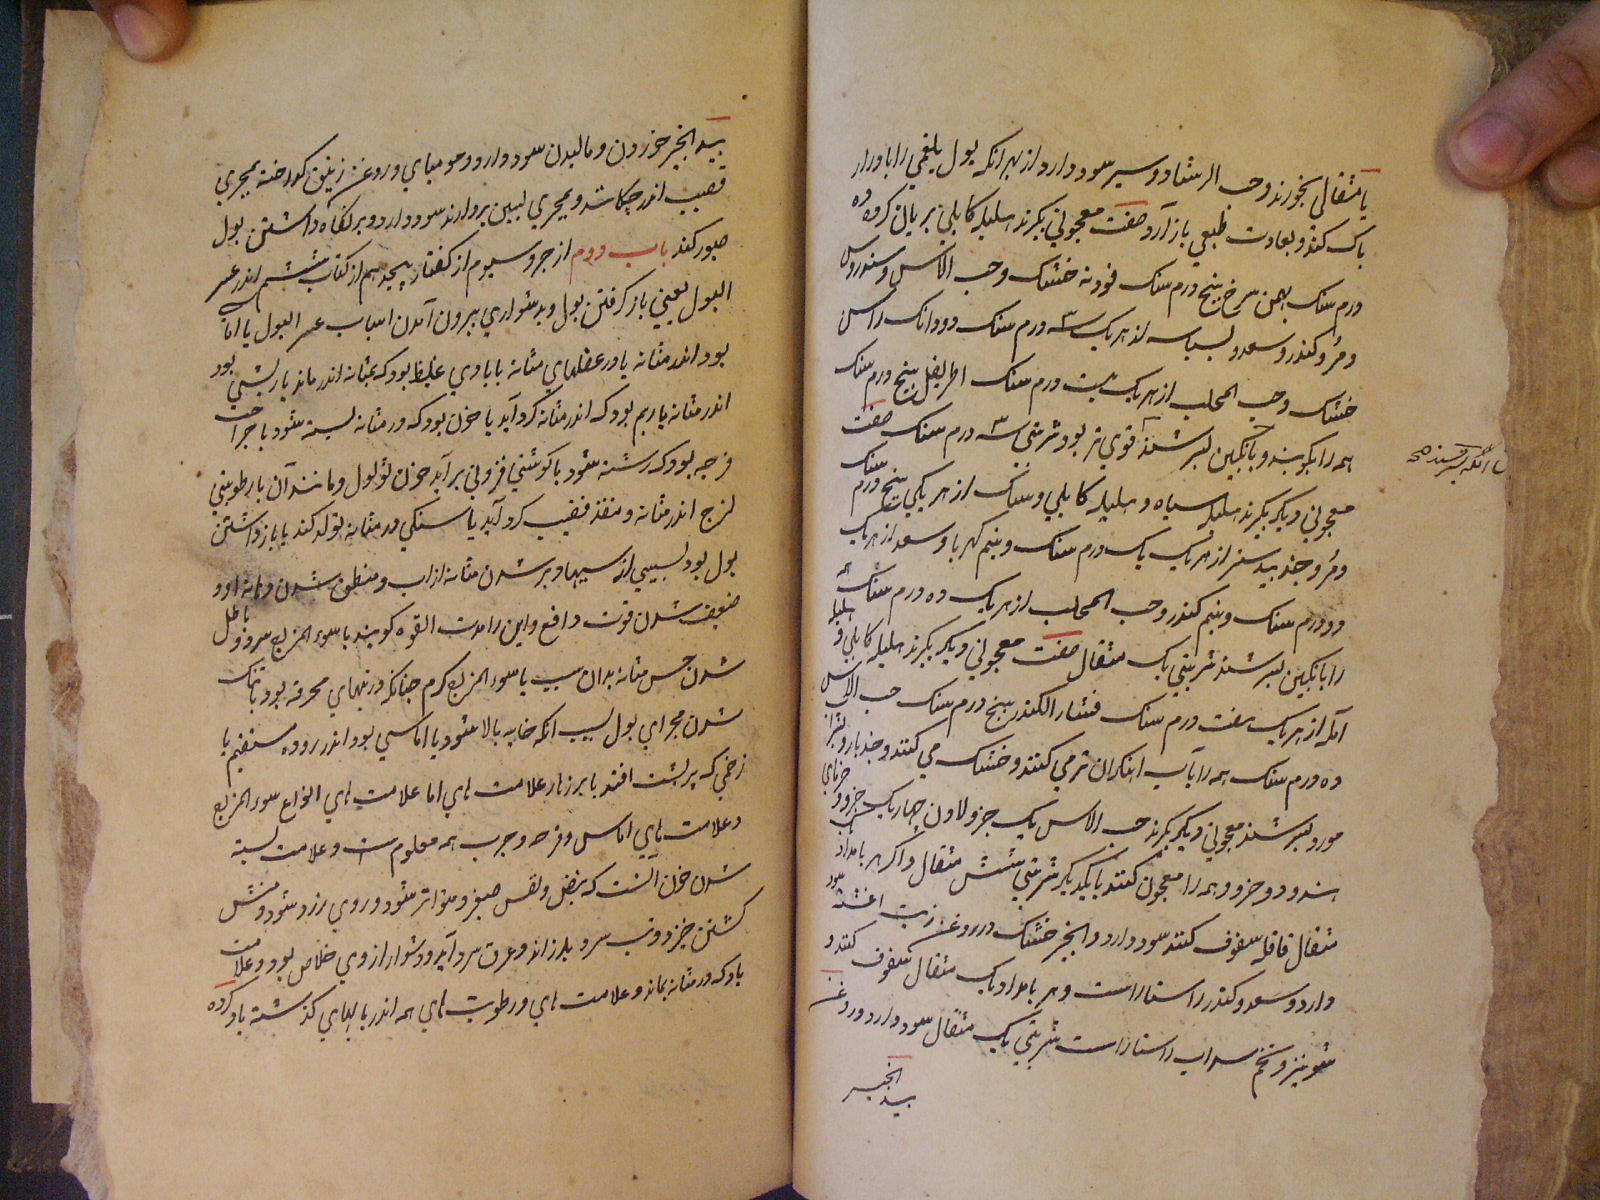 یا مثقالی بخورند و حب الرشاد و سیر سود دارد از بهر انکه بول بلغمی را با درار
پاک کند و بعادت طبعی باز آرد صفت معجونی بکیرند هلیله کابلی بریان کرده ده
درم سنک بهمن سرخ پنج درم سنک فودنه خشک و حب الاس و سندروس
و مر و کندر و سعد و بسباسه از هر یک ۳ درم سنک دو دانک راسن
خشک و حب المحلب از هر یک بیست درم سنک اطریفل پنج درم سنک
همه را بکوبند و بانکبین بسرشند قوی تر بود شربتی ۳ درم سنک صفت
معجونی دیکر بکیرند هلیله سیاه و هلیله کابلی و سنک از هر یکی پنج درم سنک
و مر و جند بیدستر از هر یک یک درم سنک و نیم کهربا و سعد از هر یک
دو درم سنک و نیم کندر و حب المحلب از هر یک ده درم سنک همه
را بانکبین بسرشند شربتی یک مثقال صفت معجونی دیکر بکیرند هلیله کابلی و هلیله
آمله از هر یک هفت درم سنک قشار الکندر پنج درم سنک حب الاس
ده درم سنک همه را بآب تر می کنند و خشک می کنند و چند بار و بشراب
مورد بسرشند معجونی دیکر بکیرند حب الاس یک جزو لادن چهار یک جزو و
دو جزو و همه را معجون کنند بایکدیکر شربتی شش مثقال و اکر هر بامداد
مثقال قاقله سفوف کنند سود دارد و انجیر خشک در روغن زیت اغشته سود
دارد و سعد و کندر راستا راست و هر بامداد یک مثقال سفوف کنند و
شونیز و تخم سداب راستا راست شربتی یک مثقال سود دارد و روغن
بید انجیر
بید انجیر خوردن و مالیدن سود دارد و مومیای و روغن زنبق کداخته بمجری
قضیب اندر چکانند و بمجری پسین بردارند سود دارد و بر کفکاه داشتن بول
صبور کند باب دوم از جزو سیوم از کفتار پیجدهم از کتاب ششم اندر عسر
البول یعنی باز کرفتن بول و بدشواری بیرون آمدن اسباب عسر البول یا اماسی
بود اندر مثانه یا در عضلهای مثانه یا بادی غلیظ بود که بمثانه اندر ماند یا ریشی بود
اندر مثانه یا ریم بود که اندر مثانه کرد آید یا خون بود که در مثانه بسته شود یا جراحت
قرحه بود که رسته شود یا کوشتی فزونی برآید چون ثولول و مانند آن یا رطوبتی
لزج اندر مثانه و منفذ قضیب کرد آید یا سنکی در مثانه تولد کند یا باز داشتن
بول بود بسببی از سببها و پر شدن مثانه از آب و منطبق شدن دهانه او و
ضعیف شدن قوت دافع و این را مدت القوه کویند یا سوء المزاج سرد و باطل
شدن حس مثانه بدان سبب یا سوء المزاج کرم چنانکه در تبهای محرقه بود یا تنک
شدن مجرای بول بسبب انکه خایه بالا شود یا اماسی بود اندر روده مستقیم یا
زخمی که بر پشت افتد یا بر زهار علامت های اما علامت های انواع سوء المزاج
و علامت های اماس و قرحه و جرب همه معلومست و علامت بسته
شدن خون آنست که نبض و نفس صغیر و متواتر شود و روی زرد شود و منش
کشتن خیزد و تب سرد بلرزاند و عرق سرد آید و دشوار از وی خلاص بود و علامت
باد که در مثانه بماند و علامت های و رطوبت های همه اندر بابهای کذشته یاد کرده